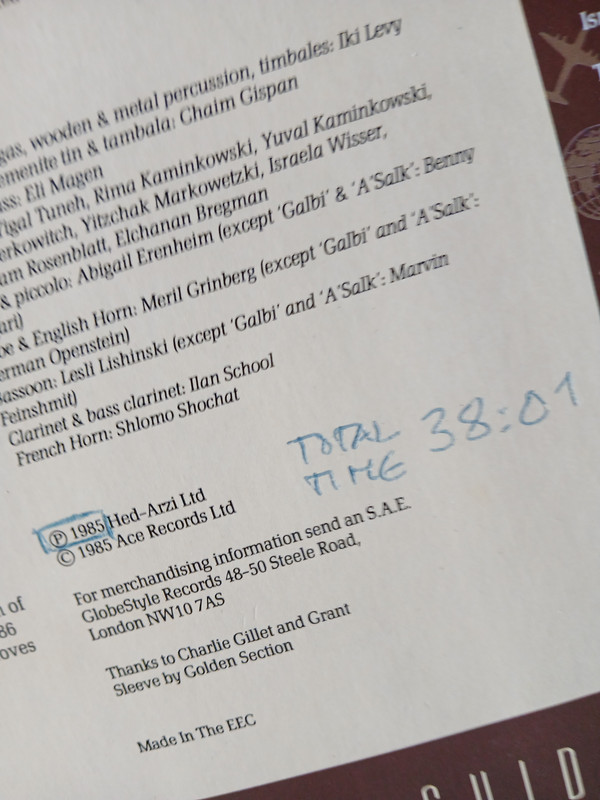 gas, wooden & metal percussion, timbales: Iki Levy
emenite tin & tambala: Chaim Gispan
ss: Eli Magen
Yigal Tuneh, Rima Kaminkowski, Yuval Kaminkowski,
erkowitch, Yitzchak Markowetzki, Israela Wisser,
am Rosenblatt, Elchanan Bregman
& piccolo: Abigail Erenheim (except 'Galbi' & 'A'Salk': Benny
ari)
oe & English Horn: Meril Grinberg (except 'Galbi' and 'A'Salk':
erman Openstein)
Bassoon: Lesli Lishinski (except 'Galbi' and 'A'Salk': Marvin
Feinshmit)
Clarinet & bass clarinet: Ilan School
French Horn: Shlomo Shochat
TOTAL TIME 38:01
Ⓟ 1985 Hed-Arzi Ltd
© 1985 Ace Records Ltd
For merchandising information send an S.A.E.
GlobeStyle Records 48-50 Steele Road,
London NW10 7AS
n of
86
oves
Thanks to Charlie Gillet and Grant
Sleeve by Golden Section
Made In The EEC
GUID